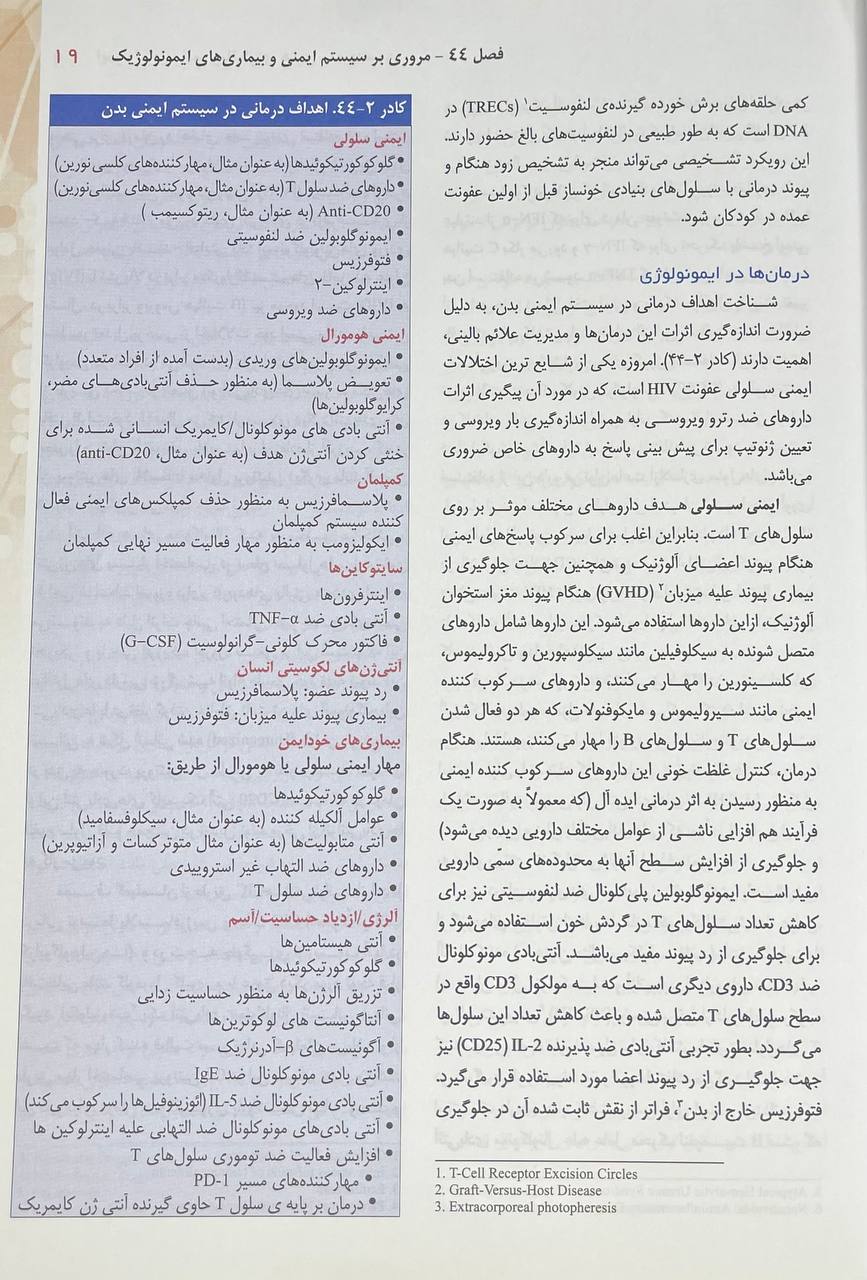 فصل ٤٤ - مروری بر سیستم ایمنی و بیماری‌های ایمونولوژیک ۱۹
کمی حلقه‌های برش خورده گیرنده‌ی لنفوسیت۱ (TRECs) در
DNA است که به طور طبیعی در لنفوسیت‌های بالغ حضور دارند.
این رویکرد تشخیصی می‌تواند منجر به تشخیص زود هنگام و
پیوند درمانی با سلول‌های بنیادی خونساز قبل از اولین عفونت
عمده در کودکان شود.
درمان‌ها در ایمونولوژی
شناخت اهداف درمانی در سیستم ایمنی بدن، به دلیل
ضرورت اندازه‌گیری اثرات این درمان‌ها و مدیریت علائم بالینی،
اهمیت دارند (کادر ۲-۴۴). امروزه یکی از شایع ترین اختلالات
ایمنی سلولی عفونت HIV است، که در مورد آن پیگیری اثرات
داروهای ضد رترو ویروسی به همراه اندازه‌گیری بار ویروسی و
تعیین ژنوتیپ برای پیش بینی پاسخ به داروهای خاص ضروری
می‌باشد.
ایمنی سلولی هدف داروهای مختلف موثر بر روی
سلول‌های T است. بنابراین اغلب برای سرکوب پاسخ‌های ایمنی
هنگام پیوند اعضای آلوژنیک و همچنین جهت جلوگیری از
بیماری پیوند علیه میزبان۲ (GVHD) هنگام پیوند مغز استخوان
آلوژنیک، ازاین داروها استفاده می‌شود. این داروها شامل داروهای
متصل شونده به سیکلوفیلین مانند سیکلوسپورین و تاکرولیموس،
که کلسینورین را مهار می‌کنند، و داروهای سرکوب کننده
ایمنی مانند سیرولیموس و مایکوفنولات، که هر دو فعال شدن
سلول‌های T و سلول‌های B را مهار می‌کنند، هستند. هنگام
درمان، کنترل غلظت خونی این داروهای سرکوب کننده ایمنی
به منظور رسیدن به اثر درمانی ایده آل (که معمولاً به صورت یک
فرآیند هم افزایی ناشی از عوامل مختلف دارویی دیده می‌شود)
و جلوگیری از افزایش سطح آنها به محدوده‌های سمّی دارویی
مفید است. ایمونوگلوبولین پلی‌کلونال ضد لنفوسیتی نیز برای
کاهش تعداد سلول‌های T در گردش خون استفاده می‌شود و
برای جلوگیری از رد پیوند مفید می‌باشد. آنتی‌بادی مونوکلونال
ضد CD3، داروی دیگری است که به مولکول CD3 واقع در
سطح سلول‌های T متصل شده و باعث کاهش تعداد این سلول‌ها
می‌گردد. بطور تجربی آنتی‌بادی ضد پذیرنده IL-2 (CD25) نیز
جهت جلوگیری از رد پیوند اعضا مورد استفاده قرار می‌گیرد.
فتوفرزیس خارج از بدن۳، فراتر از نقش ثابت شده آن در جلوگیری
1. T-Cell Receptor Excision Circles
2. Graft-Versus-Host Disease
3. Extracorporeal photopheresis
کادر ۲-٤٤. اهداف درمانی در سیستم ایمنی بدن
ایمنی سلولی
• گلوکوکورتیکوئیدها(به عنوان مثال، مهارکننده‌های کلسی‌نورین)
• داروهای ضد سلول T (به عنوان مثال، مهارکننده‌های کلسی‌نورین)
• Anti-CD20 (به عنوان مثال، ریتوکسیمب )
• ایمونوگلوبولین ضد لنفوسیتی
• فتوفرزیس
• اینترلوکین-۲
• داروهای ضد ویروسی
ایمنی هومورال
• ایمونوگلوبولین‌های وریدی (بدست آمده از افراد متعدد)
• تعویض پلاسما (به منظور حذف آنتی‌بادی‌های مضر،
کرایوگلوبولین‌ها)
• آنتی بادی های مونوکلونال/کایمریک انسانی شده برای
خنثی کردن آنتی‌ژن هدف (به عنوان مثال، anti-CD20)
کمپلمان
• پلاسمافرزیس به منظور حذف کمپلکس‌های ایمنی فعال
کننده سیستم کمپلمان
• ایکولیزومب به منظور مهار فعالیت مسیر نهایی کمپلمان
سایتوکاین‌ها
• اینترفرون‌ها
• آنتی بادی ضد TNF-α
• فاکتور محرک کلونی-گرانولوسیت (G-CSF)
آنتی‌ژن‌های لکوسیتی انسان
• رد پیوند عضو: پلاسمافرزیس
• بیماری پیوند علیه میزبان: فتوفرزیس
بیماری‌های خودایمن
مهار ایمنی سلولی یا هومورال از طریق:
• گلوکوکورتیکوئیدها
• عوامل آلکیله کننده (به عنوان مثال، سیکلوفسفامید)
• آنتی متابولیت‌ها (به عنوان مثال متوترکسات و آزاتیوپرین)
• داروهای ضد التهاب غیر استروییدی
• داروهای ضد سلول T
آلرژی/ازدیاد حساسیت/آسم
• آنتی هیستامین‌ها
• گلوکوکورتیکوئیدها
• تزریق آلرژن‌ها به منظور حساسیت زدایی
• آنتاگونیست های لوکوترین‌ها
• آگونیست‌های β-آدرنرژیک
• آنتی بادی مونوکلونال ضد IgE
• آنتی بادی مونوکلونال ضد IL-5 (ائوزینوفیل‌ها را سرکوب می‌کند)
• آنتی بادی‌های مونوکلونال ضد التهابی علیه اینترلوکین ها
• افزایش فعالیت ضد توموری سلول‌های T
• مهارکننده‌های مسیر PD-1
• درمان بر پایه ی سلول T حاوی گیرنده آنتی ژن کایمریک